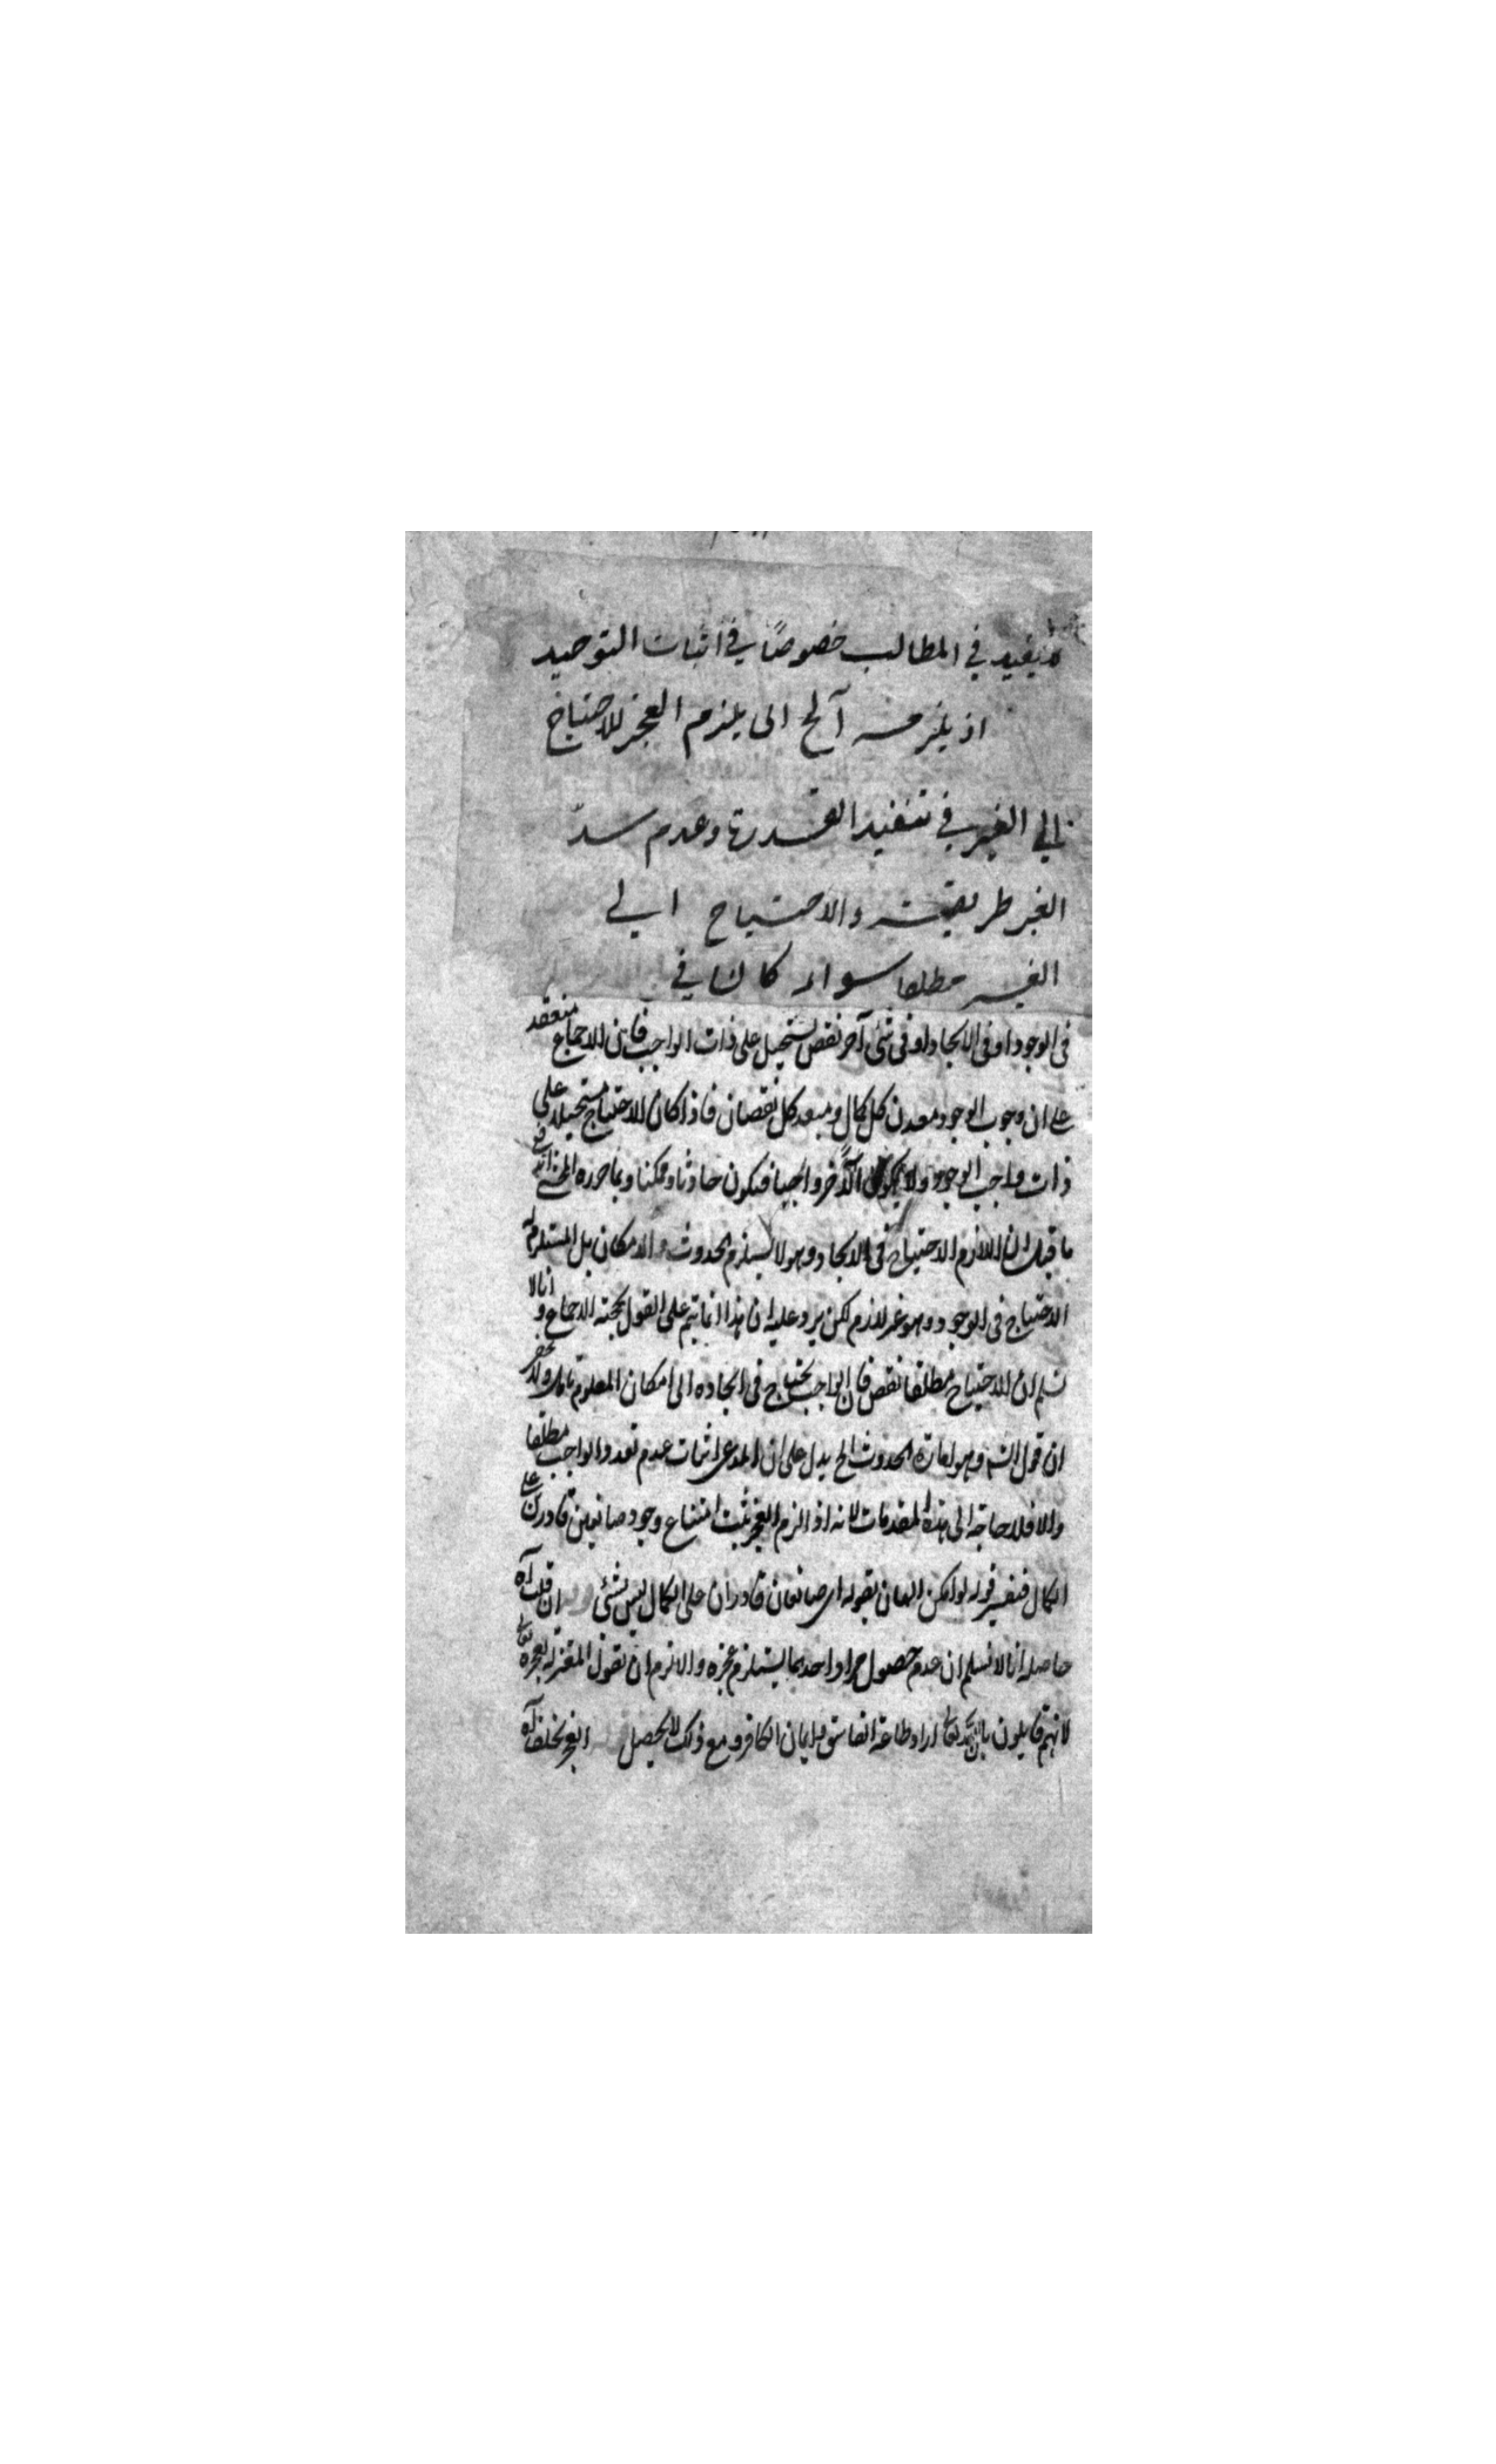 لا يفيد في المطالب خصوصًا في اثبات التوحيد
اذ يلزم منه آلخ الى يلزم العجز للاحتياج
الي الغير في تنفيذ القدرة وعدم سدّ
الغير طريقته والاحتياج الي
الغير مطلقا سواء كان في
فى الوجود او فى الايجاد او فى شئ آخر نقص يستحيل على ذات الواجب فان الاجماع منعقد
على ان وجوب الوجود معدن كل كمال ومبعد كل نقصان فاذا كان الاحتياج مستحيلا على
ذات واجب الوجود ولا يكون الآخر واجبا فيكون حادثا وممكنا وبما حرره المحشى اندفع
ما قيل ان اللازم الاحتياج فى الايجاد وهو لا يستلزم الحدوث والامكان بل المستلزم له
الاحتياج فى الوجود وهو غير لازم لكن يرد عليه ان هذا انما يتم على القول بحجة الاجماع وانا لا
نسلم ان الاحتياج مطلقا نقص فان الواجب يحتاج فى ايجاده الى امكان المعلوم
ان قول الشه وهو امارة الحدوث الخ يدل على ان المدعى اثبات عدم تعدد الواجب مطلقا
والا فلا حاجة الى هذه المقدمات لانه اذا لزم العجز ثبت امتناع وجود صانعين قادرين على
الكمال فتفسير قوله لو امكن الهان بقوله اى صانعان قادران على الكمال ليس بشئ ان قلت آه
حاصله انا لا نسلم ان عدم حصول مراد احدهما يستلزم عجزه والا لزم ان يقول المعتزلة بعجزه تعالى
لانهم قايلون بان الله تعالى اراد طاعة الفاسق وايمان الكافر ومع ذلك لا يحصل العجز تخلف آه